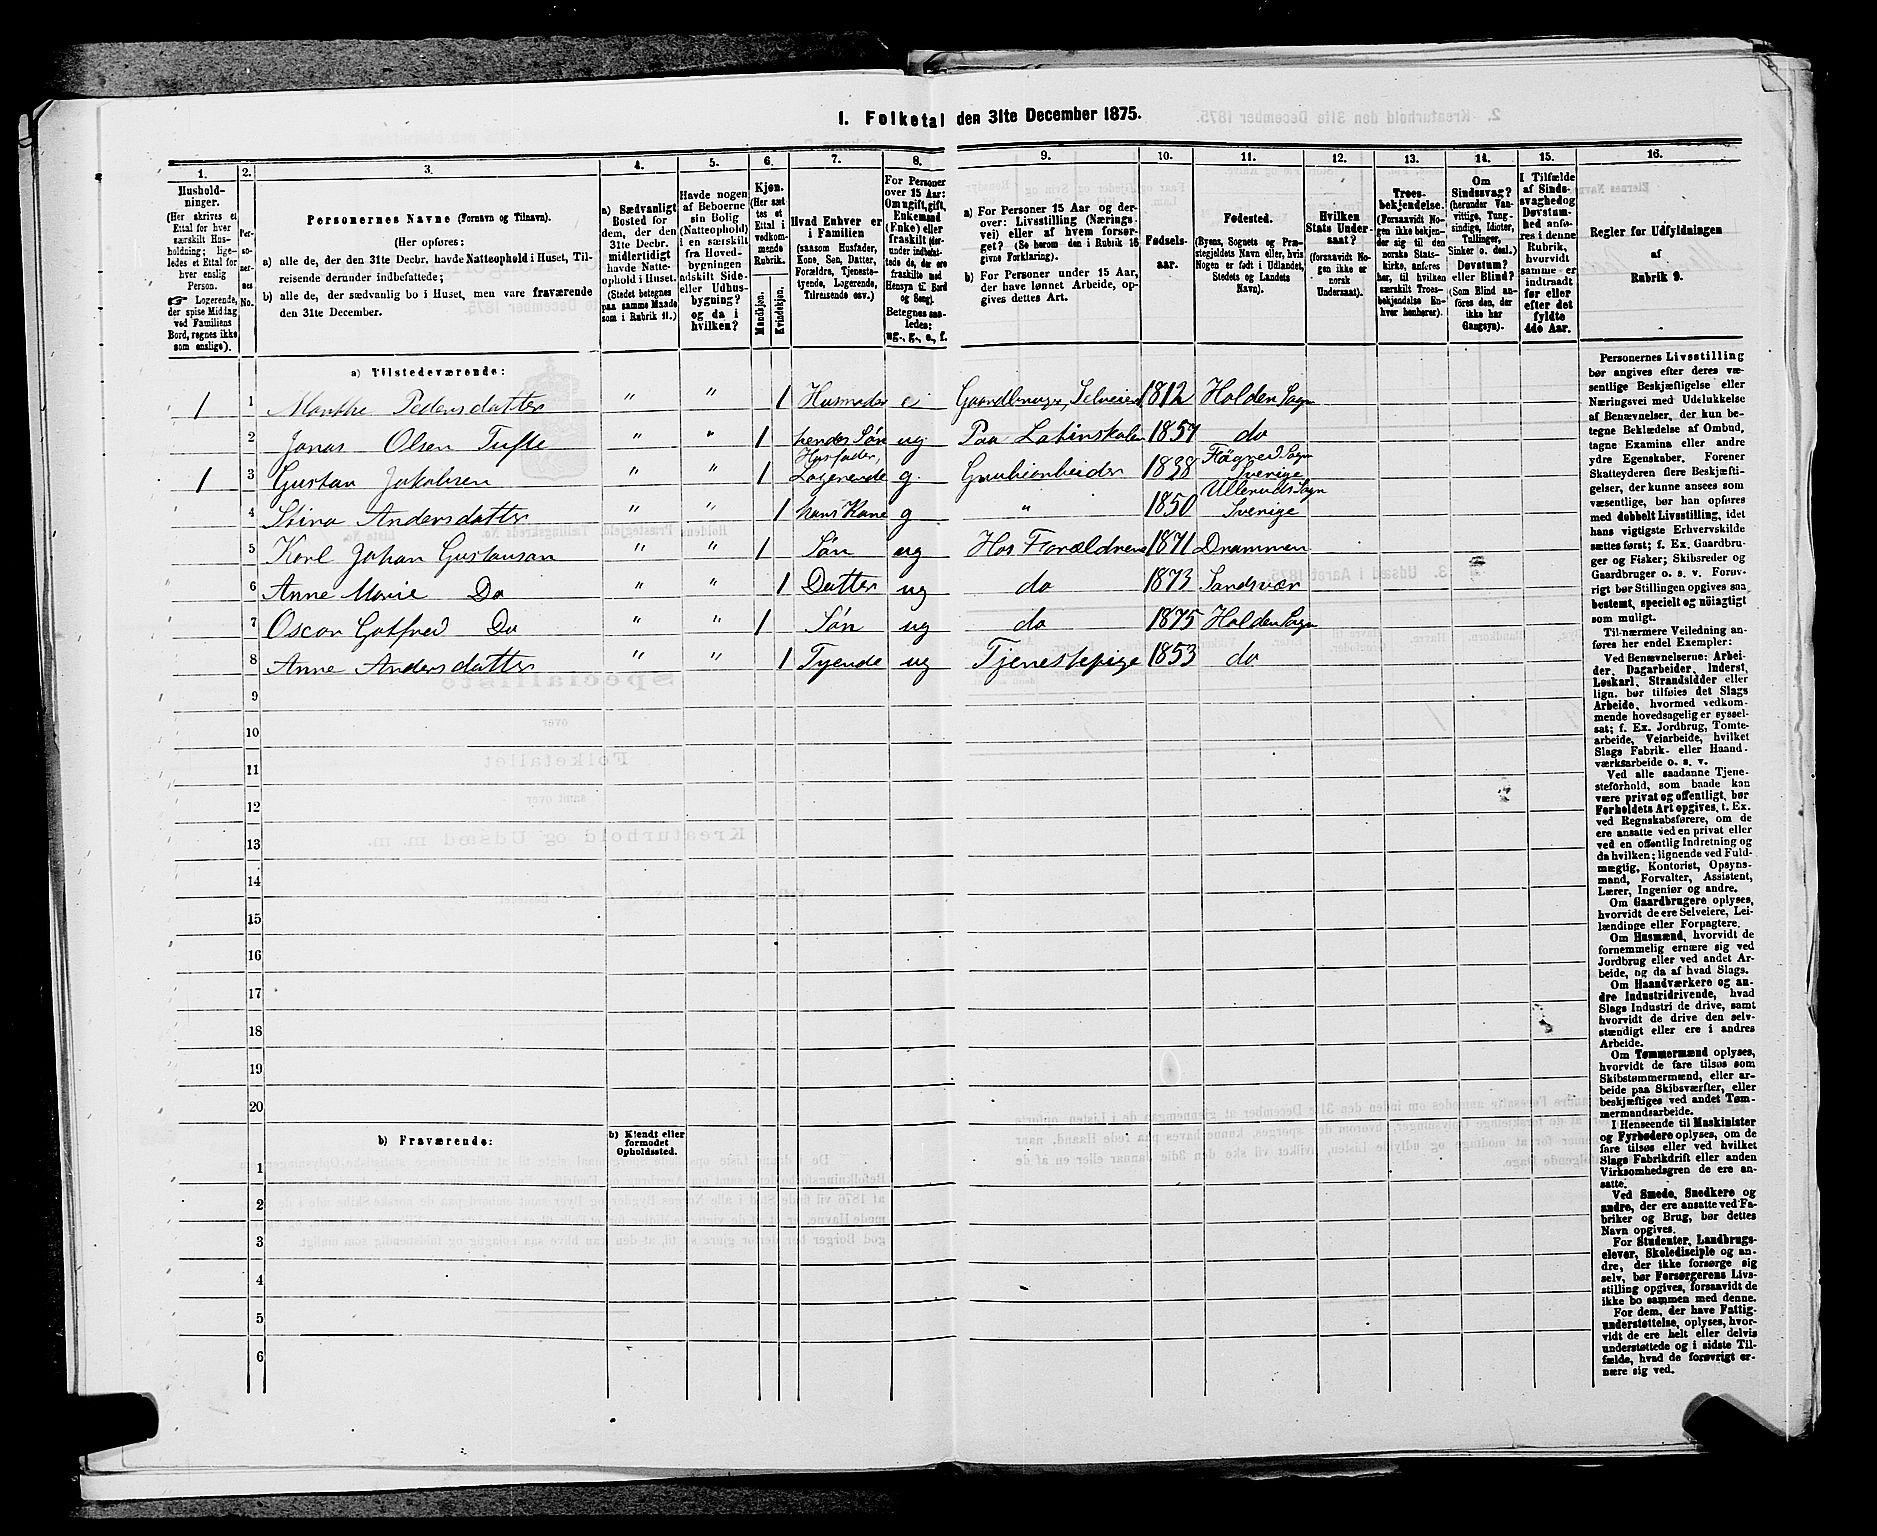 1. Folketal den 31te December 1875.
1. 2. 3. 4. 5. 6. 7. 8. 9. 10. 11. 12. 13. 14. 15. 16.
Hushold-
ninger.
(Her skrives et
Ettal for hver
særskilt Hus-
holdning; lige-
ledes et Ettal for
hver enslig
Person.
☞ Logerende,
der spise Middag
ved Familiens
Bord, regnes ikke
som enslige).
Per-
so-
ner-
nes
No.
Personernes Navne (Fornavn og Tilnavn).
(Her opføres:
a) alle de, der den 31te Decbr. havde Natteophold i Huset, Til-
reisende derunder indbefattede;
b) alle de, der sædvanlig bo i Huset, men vare fraværende
den 31te December.
a) Sædvanligt
Bosted for
dem, der den
31te Decbr.
midlertidigt
havde Natte-
ophold i Huset.
(Stedet betegnes
paa samme Maade
som i Rubrik 11.)
Havde nogen
af Beboerne
sin Bolig
(Natteophold)
i en særskilt
fra Hoved-
bygningen
adskilt Side-
eller Udhus-
bygning?
og da i
hvilken?
Kjøn.
(Her sæt-
tes et
Ettal i
vedkom-
mende
Rubrik.
Mandkjøn.
Kvindekjøn.
Hvad Enhver er
i Familien
(saasom Husfader,
Kone, Søn, Datter,
Forældre, Tjeneste-
tyende, Logerende,
Tilreisende osv.)
For Personer
over 15 Aar:
Om ugift, gift,
Enkemand
(Enke) eller
fraskilt (der-
under indbefat-
tede de, der ere
fraskilte med
Hensyn til Bord
og Seng).
Betegnes saa-
ledes:
ug., g., e., f.
a) For Personer 15 Aar og der-
over: Livsstilling (Nærings-
vei) eller af hvem forsør-
get? (Se herom den i Rubrik 16
givne Forklaring).
b) For Personer under 15 Aar,
der have lønnet Arbeide, op-
gives dettes Art.
Fødsels-
aar.
Fødested.
(Byens, Sognets og Præ-
stegjeldets Navn eller, hvis
Nogen er født i Udlandet,
Stedets og Landets
Navn).
Hvilken
Stats Under-
saat?
(forsaavidt No-
gen ikke er
norsk
Undersaat).
Troes-
bekjendelse.
(Forsaavidt No-
gen ikke bekjen-
der sig til den
norske Stats-
kirke, anføres
her, til hvilken
særskilt Troes-
bekjendelse En-
hver henhører).
Om
Sindssvag?
(herunder Van-
vittige, Tung-
sindige, Idioter,
Tullinger,
Sinker o. desl.)
Døvstum?
eller Blind?
(Som Blind an-
føres den, der
ikke har
Gangsyn).
I Tilfælde
af Sinds-
svaghed og
Døvstum-
hed anfø-
res i denne
Rubrik,
hvorvidt
samme er
indtraadt
før eller
efter det
fyldte
4de Aar.
Regler for Udfyldningen
af
Rubrik 9.
a) Tilstedeværende:
1 1 Marthe Pedersdatter " " 1 Husmoder e Gaardbruger, Selveier 1812 Holden Sogn
2 Jonas Olsen Tufte " " 1 hendes Søn ug Paa Latinskolen 1857 do
1 3 Gustav Jakobsen " " 1 Husfader, Logerende g. Grubearbeider 1838 Sogn Sverige
4 Stina Andersdatter " " 1 hans Kone g " 1850 Ulleruds Sogn Sverige
5 Karl Johan Gustavsen " " 1 Søn ug Hos Forældrene 1871 Drammen
6 Anne Marie Do " " 1 Datter ug do 1873 Sandsvær
7 Oscar Gotfred Do " " 1 Søn ug do 1875 Holden Sogn
8 Anne Andersdatter " " 1 Tyende ug Tjenestepige 1853 do
9
10
11
12
13
14
15
16
17
18
19
20
b) Fraværende:
b) Kjendt eller
formodet
Opholdssted.
1
2
3
4
5
6
Personernes Livsstilling
bør angives efter deres væ-
sentlige Beskjæftigelse eller
Næringsvei med Udelukkelse
af Benævnelser, der kun be-
tegne Beklædelse af Ombud,
tagne Examina eller andre
ydre Egenskaber. Forener
Skatteyderen flere Beskjæfti-
gelser, der kunne ansees som
væsentlige, bør han opføres
med dobbelt Livsstilling, idet
hans vigtigste Erhvervskilde
sættes først; f. Ex. Gaardbru-
ger og Fisker; Skibsreder og
Gaardbruger o. s. v. Forøv-
rigt bør Stillingen opgives saa
bestemt, specielt og nøiagtigt
som muligt.
Til nærmere Veiledning an-
føres her endel Exempler:
Ved Benævnelserne: Arbei-
der, Dagarbeider, Inderst,
Løskarl, Strandsidder eller
lign. bør tilføies det Slags
Arbeide, hvormed vedkom-
mende hovedsagelig er syssel-
sat; f. Ex. Jordbrug, Tomte-
arbeide, Veiarbeide, hvilket
Slags Fabrik- eller Haand-
værksarbeide o. s. v.
Ved alle saadanne Tjene-
steforhold, som baade kan
være privat og offentligt, bør
Forholdets Art opgives, t. Ex.
ved Regnskabsførere, om de
ere ansatte ved en privat eller
ved en offentlig Indretning og
da hvilken; lignende ved Fuld-
mægtig, Kontorist, Opsyns-
mand, Forvalter, Assistent,
Lærer, Ingeniør og andre.
Om Gaardbrugere oplyses,
hvorvidt de ere Selveiere, Lei-
lændinge eller Forpagtere.
Om Husmænd, hvorvidt de
fornemmelig ernære sig ved
Jordbrug eller ved andet Ar-
beide, og da af hvad Slags.
Om Haandværkere og an-
dre Industridrivende, hvad
Slags Industri de drive, samt
hvorvidt de drive den selv-
stændigt eller ere i andres
Arbeide.
Om Tømmermænd oplyses,
hvorvidt de fare tilsøs som
Skibstømmermænd, eller ar-
beide paa Skibsværfter, eller
beskjæftiges ved andet Tøm-
mermandsarbeide.
I Henseende til Maskinister
og Fyrbødere oplyses, om de
fare tilsøs eller ved hvilket
Slags Fabrikdrift eller anden
Virksomhedsgren de ere an-
satte.
Ved Smede, Snedkere og
andre, der ere ansatte ved Fa-
briker og Brug, bør dettes
Navn opgives.
For Studenter, Landbrugs-
elever, Skoledisciple og an-
dre, der ikke forsørge sig
selv, bør Forsørgerens Livs-
stilling opgives, forsaavidt de
ikke bo sammen med denne.
For dem, der have Fattig-
understøttelse, oplyses, hvor-
vidt de ere helt eller delvis
understøttede og i sidste Til-
fælde, hvad de forøvrigt er-
nære sig ved.